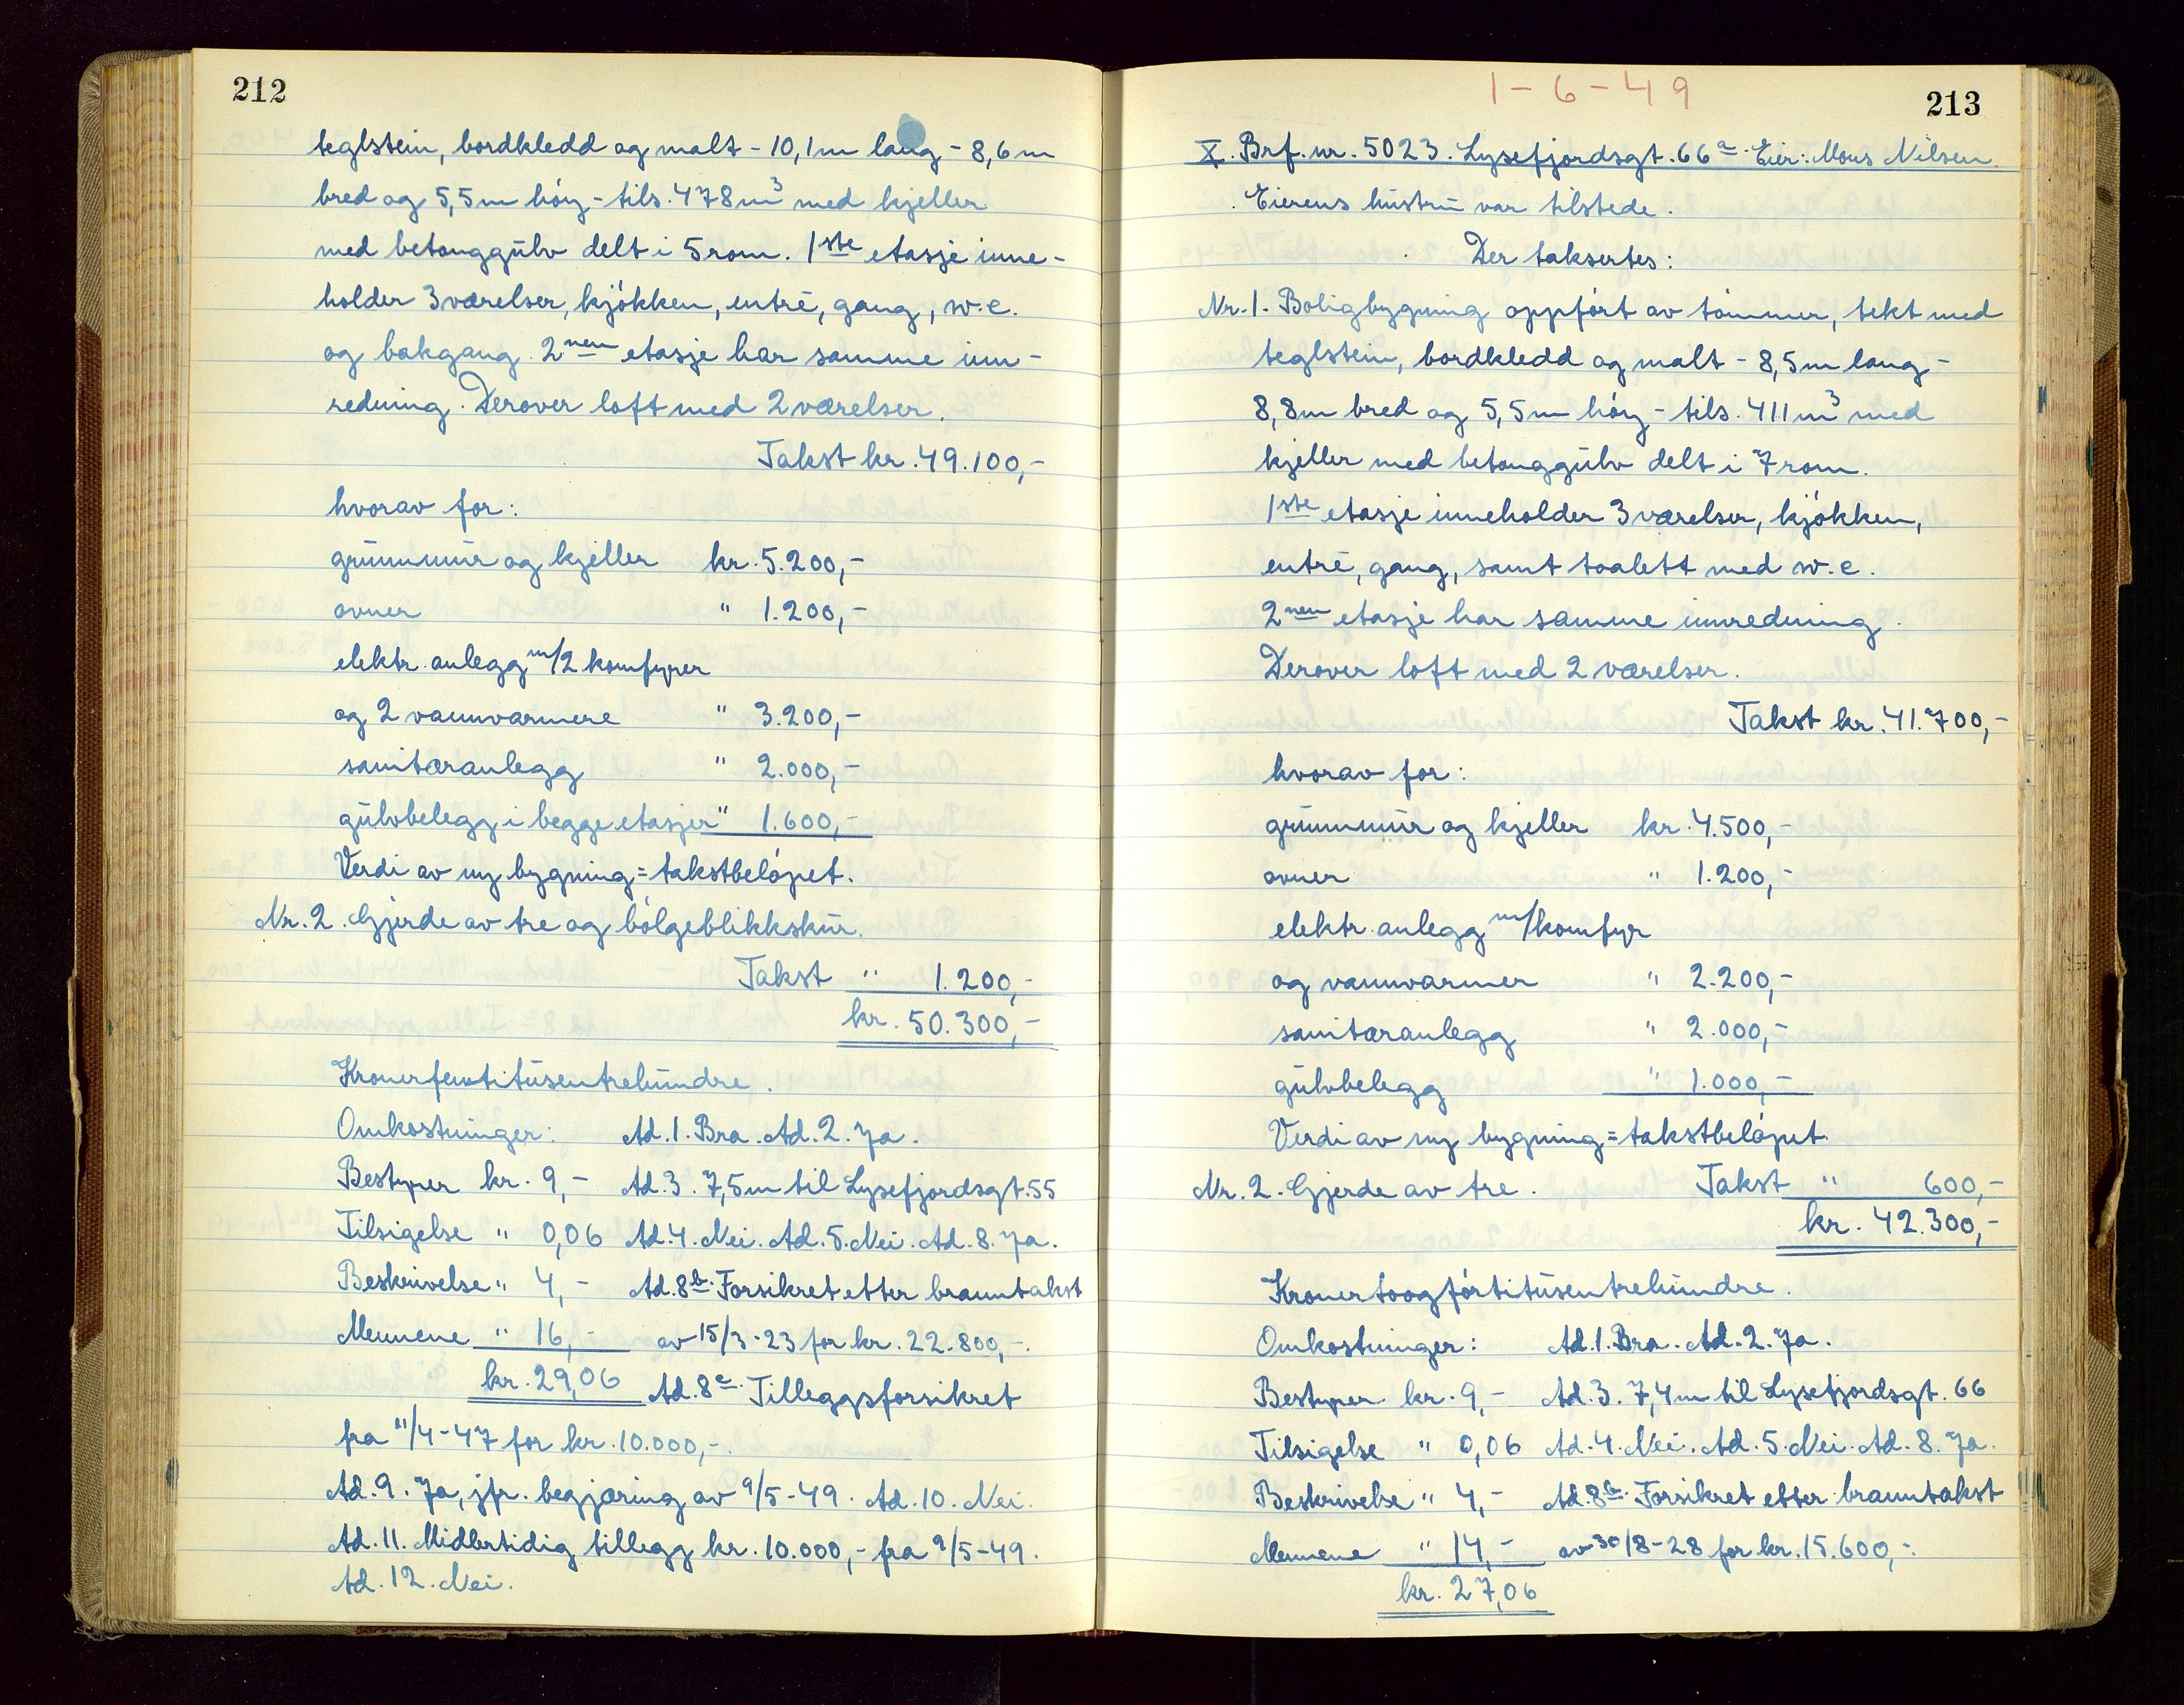 212
teglstein, bordkledd og malt - 10,1 m lang - 8,6 m
bred og 5,5 m høy - tils. 478 m³ med kjeller
med betonggulv delt i 5 rom. 1ste etasje inne-
holder 3 værelser, kjøkken, entré, gang, w.c.
og bakgang. 2nen etasje har samme inn-
redning. Derover loft med 2 værelser.
Takst kr. 49.100,-
hvorav for:
grunnmur og kjeller kr. 5.200,-
ovner " 1.200,-
elektr. anlegg m/2 komfyrer
og 2 vannvarmere " 3.200,-
sanitæranlegg " 2.000,-
gulvbelegg i begge etasjer " 1.600,-
Verdi av ny bygning = takstbeløpet.
Nr. 2. Gjerde av tre og bølgeblikkskur.
Takst " 1.200,-
kr. 50.300,-
Kronerfemtitusentrehundre.
Omkostninger: Ad. 1. Bra. Ad. 2. Ja.
Bestyrer kr. 9,- Ad. 3. 7,5 m til Lysefjordsgt. 55
Tilsigelse " 0,06 Ad. 4. Nei. Ad. 5. Nei. Ad. 8. Ja.
Beskrivelse " 4,- Ad. 8b. Forsikret etter branntakst
Mennene " 16,- av 15/3-23 for kr. 22.800,-.
kr. 29,06 Ad. 8c. Tilleggsforsikret
fra 11/4-47 for kr. 10.000,-.
Ad. 9. Ja, jfr. begjæring av 9/5-49. Ad. 10. Nei.
Ad. 11. Midlertidig tillegg kr. 10.000,- fra 9/5-49.
Ad. 12. Nei.
1-6-49
213
X. Brf. nr. 5023. Lysefjordsgt. 66a. Eier: Mons Nilsen.
Eierens hustru var tilstede.
Der taksertes:
Nr. 1. Boligbygning oppført av tømmer, tekt med
teglstein, bordkledd og malt - 8,5 m lang -
8,8 m bred og 5,5 m høy - tils. 411 m³ med
kjeller med betonggulv delt i 7 rom.
1ste etasje inneholder 3 værelser, kjøkken,
entré, gang, samt toalett med w.c.
2nen etasje har samme innredning.
Derover loft med 2 værelser.
Takst kr. 41.700,-
hvorav for:
grunnmur og kjeller kr. 4.500,-
ovner " 1.200,-
elektr. anlegg m/komfyr
og vannvarmer " 2.200,-
sanitæranlegg " 2.000,-
gulvbelegg " 1.000,-
Verdi av ny bygning = takstbeløpet.
Nr. 2. Gjerde av tre. Takst " 600,-
kr. 42.300,-
Kronertoogførtitusentrehundre.
Omkostninger: Ad. 1. Bra. Ad. 2. Ja.
Bestyrer kr. 9,- Ad. 3. 7,4 m til Lysefjordsgt. 66
Tilsigelse " 0,06 Ad. 4. Nei. Ad. 5. Nei. Ad. 8. Ja.
Beskrivelse " 4,- Ad. 8b. Forsikret etter branntakst
Mennene " 14,- av 30/8-28 for kr. 15.600,-.
kr. 27,06